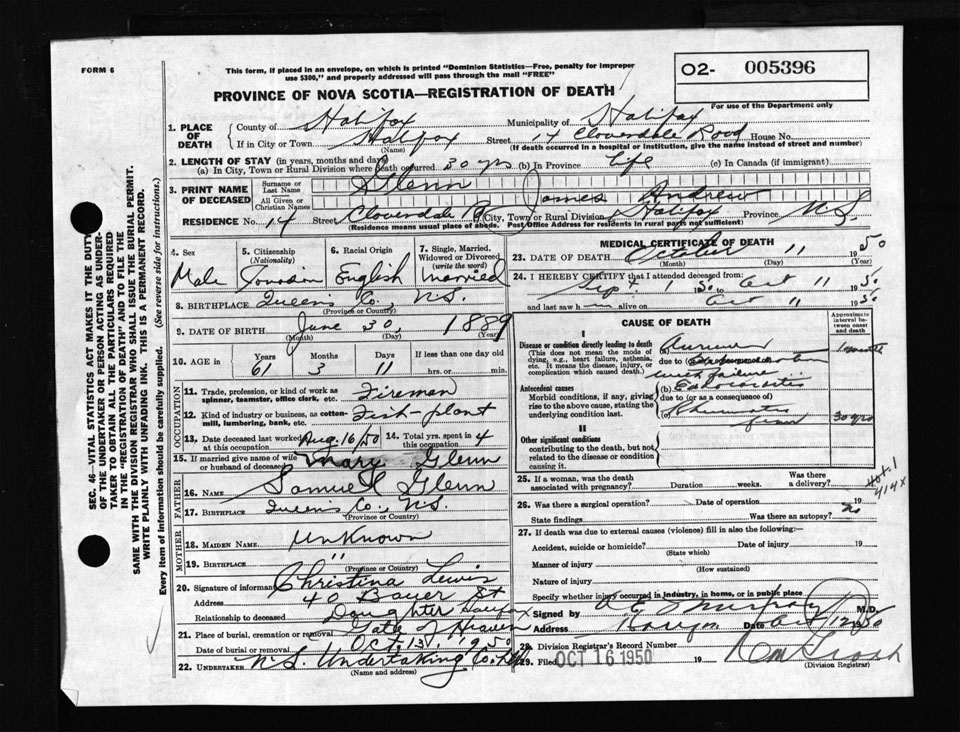 FORM 6
This form, if placed in an envelope, on which is printed "Dominion Statistics—Free, penalty for improper
use $300," and properly addressed will pass through the mail "FREE"
O2- 005396
PROVINCE OF NOVA SCOTIA—REGISTRATION OF DEATH
For use of the Department only
1. PLACE OF DEATH
County of Halifax Municipality of Halifax
If in City or Town Halifax Street 14 Cloverdale Road House No.
(Name) (If death occurred in a hospital or institution, give the name instead of street and number)
2. LENGTH OF STAY (in years, months and days)
(a) In City, Town or Rural Division where death occurred 30 yrs (b) In Province life (c) In Canada (if immigrant)
3. PRINT NAME OF DECEASED
Surname or Last Name Glenn
All Given or Christian Names James Andrew
RESIDENCE No. 14 Street Cloverdale Rd City, Town or Rural Division Halifax Province N.S.
(Residence means usual place of abode. Post Office Address for residents in rural parts not sufficient)
4. Sex Male
5. Citizenship (Nationality) Canadian
6. Racial Origin English
7. Single, Married, Widowed or Divorced (write the word) Married
8. BIRTHPLACE Queens Co., N.S.
(Province or Country)
9. DATE OF BIRTH June 30, 1889
(Month) (Day) (Year)
10. AGE in Years 61 Months 3 Days 11 If less than one day old hrs. or min.
OCCUPATION
11. Trade, profession, or kind of work as spinner, teamster, office clerk, etc. Fireman
12. Kind of industry or business, as cotton-mill, lumbering, bank, etc. Fish-plant
13. Date deceased last worked at this occupation Aug. 16/50
14. Total yrs. spent in this occupation 4
15. If married give name of wife or husband of deceased Mary Glenn
FATHER
16. NAME Samuel Glenn
17. BIRTHPLACE Queens Co., N.S.
(Province or Country)
MOTHER
18. MAIDEN NAME Unknown
19. BIRTHPLACE "
(Province or Country)
20. Signature of informant Christina Lewis
Address 40 Bauer St
Relationship to deceased Daughter Halifax
21. Place of burial, cremation or removal Gate of Heaven
Date of burial or removal Oct. 13, 1950
22. UNDERTAKER N.S. Undertaking Co. Ltd
(Name and address)
MEDICAL CERTIFICATE OF DEATH
23. DATE OF DEATH October 11 1950
(Month) (Day) (Year)
24. I HEREBY CERTIFY that I attended deceased from:
Sept. 1 50 to Oct 11 1950
and last saw h alive on Oct 11 1950
CAUSE OF DEATH
Approximate interval between onset and death
I
Disease or condition directly leading to death
(This does not mean the mode of dying, e.g. heart failure, asthenia, etc. It means the disease, injury, or complication which caused death.)
(a) Uraemia 1 month
due to
failure
Antecedent causes
Morbid conditions, if any, giving rise to the above cause, stating the underlying condition last.
(b) Endocarditis
due to (or as a consequence of)
(c) Rheumatic fever 30 yrs
II
Other significant conditions
contributing to the death, but not related to the disease or condition causing it.
25. If a woman, was the death associated with pregnancy? Duration weeks. Was there a delivery?
414X
26. Was there a surgical operation? Date of operation 19
State findings Was there an autopsy? no
27. If death was due to external causes (violence) fill in also the following:—
Accident, suicide or homicide? Date of injury 19
(State which)
Manner of injury
(How sustained)
Nature of injury
Specify whether injury occurred in industry, in home, or in public place
Signed by Murphy M.D.
Address Halifax Date Oct 12 1950
28. Division Registrar's Record Number
29. Filed OCT 16 1950 19
(Division Registrar)
SEC. 46—VITAL STATISTICS ACT MAKES IT THE DUTY
OF THE UNDERTAKER OR PERSON ACTING AS UNDER-
TAKER TO OBTAIN ALL THE PARTICULARS REQUIRED
IN THE "REGISTRATION OF DEATH" AND TO FILE THE
SAME WITH THE DIVISION REGISTRAR WHO SHALL ISSUE THE BURIAL PERMIT.
WRITE PLAINLY WITH UNFADING INK. THIS IS A PERMANENT RECORD.
Every item of information should be carefully supplied. (See reverse side for instructions.)